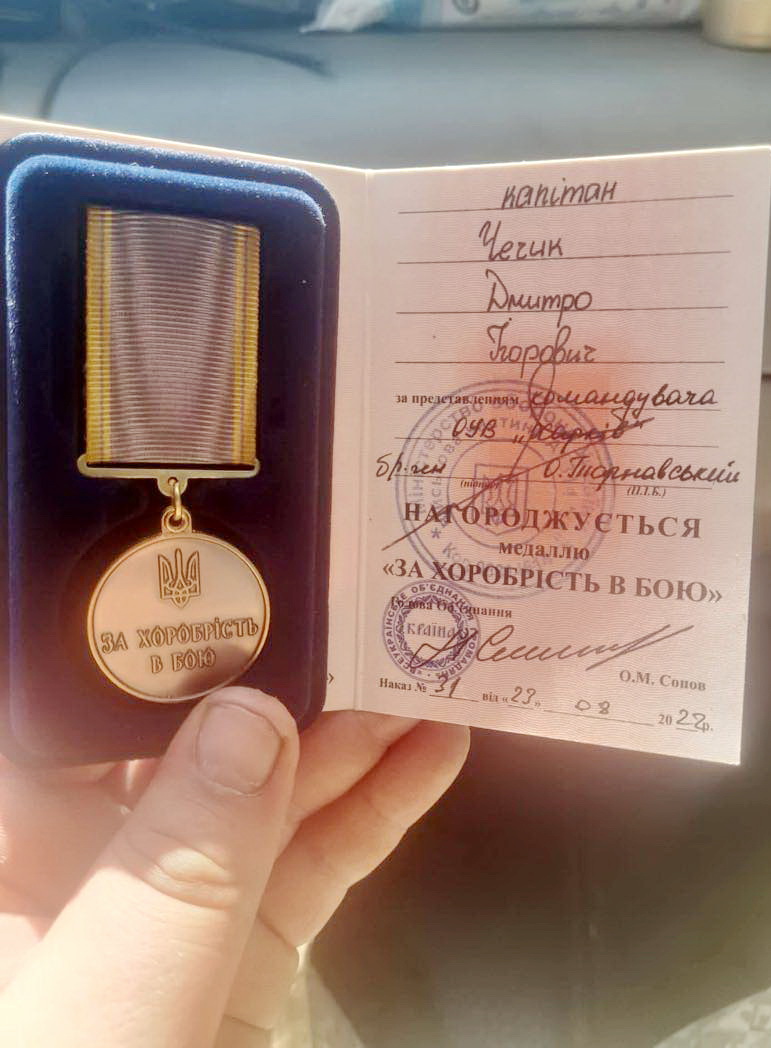 ЗА ХОРОБРІСТЬ
В БОЮ
капітан
Чечик
Дмитро
Ігорович
за представленням командувача
ОУВ „Харків"
бр. ген О. Тарнавський
(П.І.Б.)
НАГОРОДЖУЄТЬСЯ
медаллю
«ЗА ХОРОБРІСТЬ В БОЮ»
Голова Об'єднання
КРАЇНА
О.М. Сопов
Наказ № 31 від «23» 08 2022р.